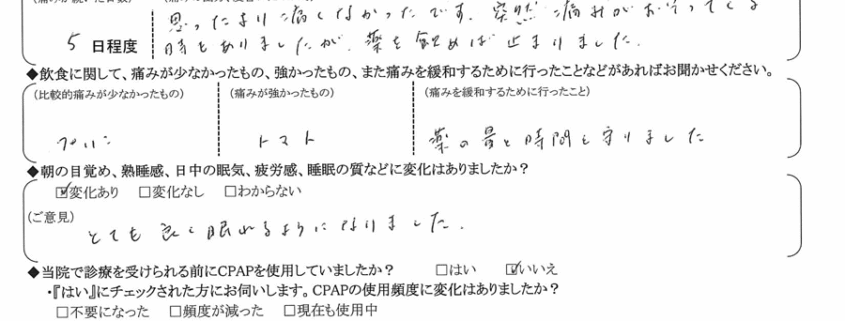 思ったより痛くなかったです。突然痛みがおそってくる
5 日程度 時もありましたが、薬を飲めば止まりました。
◆飲食に関して、痛みが少なかったもの、強かったもの、また痛みを緩和するために行ったことなどがあればお聞かせください。
(比較的痛みが少なかったもの) (痛みが強かったもの) (痛みを緩和するために行ったこと)
プリン トマト 薬の量と時間を守りました
◆朝の目覚め、熟睡感、日中の眠気、疲労感、睡眠の質などに変化はありましたか？
☑変化あり □変化なし □わからない
(ご意見)
とても良く眠れるようになりました。
◆当院で診療を受けられる前にCPAPを使用していましたか？ □はい ☑いいえ
・『はい』にチェックされた方にお伺いします。CPAPの使用頻度に変化はありましたか？
□不要になった □頻度が減った □現在も使用中